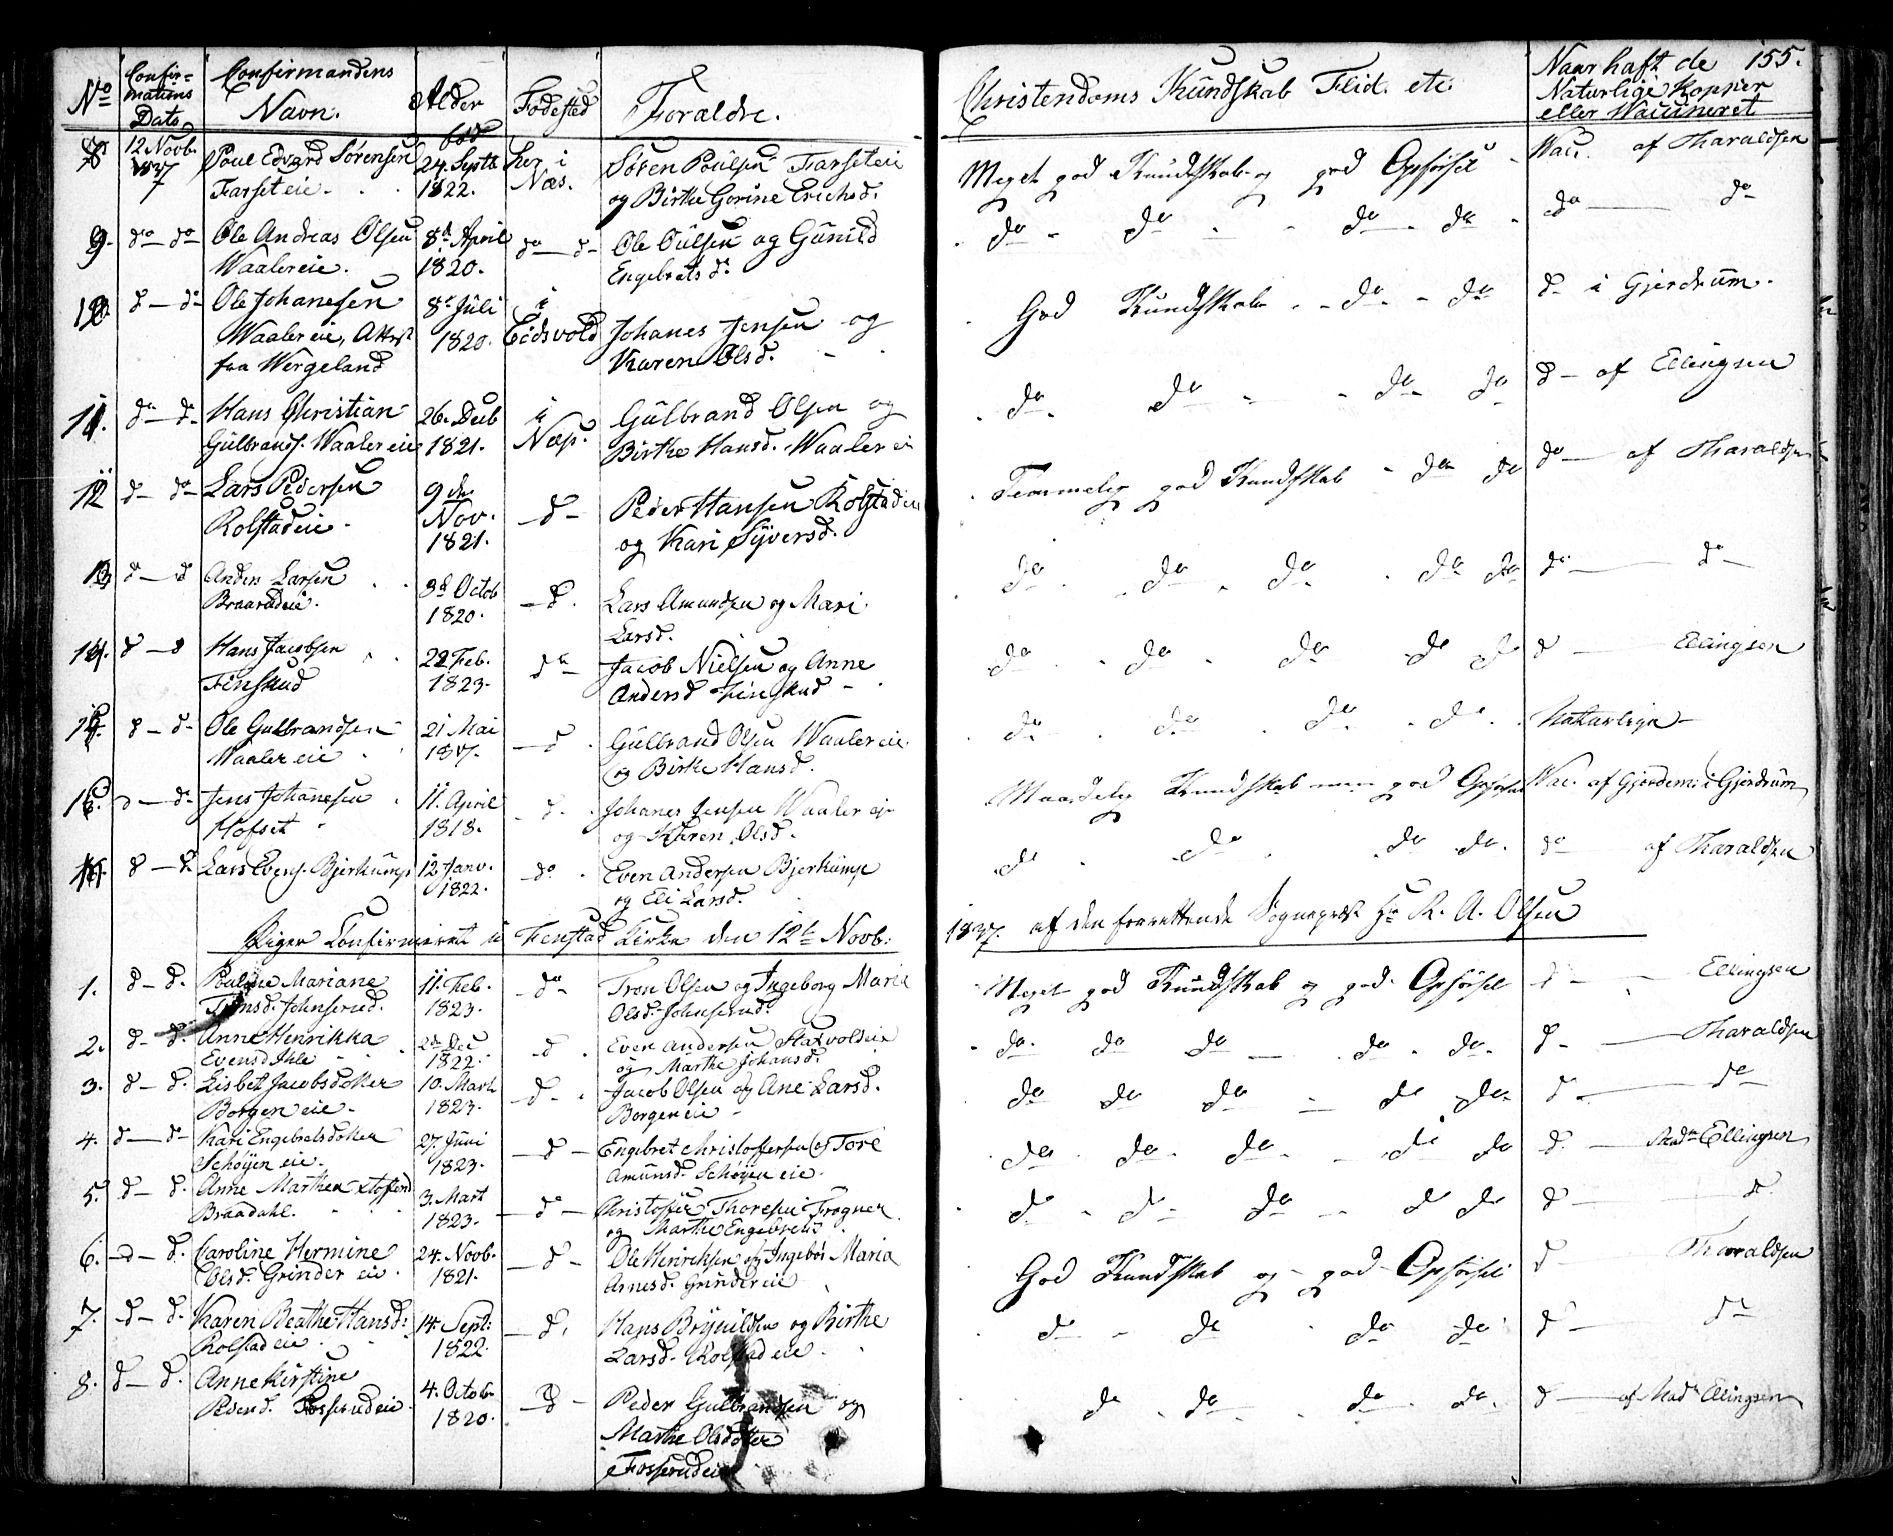 No Confirmations Dato Confirmandens Navn. Alder Fødested Foræld­re. Christendoms Kundskab Flid. etc. Naar haft de Naturlige Kopper eller Vaccineret 155.
8. 12 Novb. 1837 Poul Edvard Sørensen født 24. Septb. her i Søren Poulsen Farseteie Meget god Kundskab og god Opførsel Vacc. af Tharaldsen
Farseteie. 1822. Næs. og Birthe Gorine Erichsd.
9. do do Ole Andreas Olsen 8d April do d Ole Oulsen og Gunild do do do do do do
Waalereie. 1820. Engebrets d.
10. d do Ole Johanesen 8d Juli i
Waalereie, 1820. Eidsvold Johanes Jensen og God Kundskab do do d i Gjerdrum.
fra Wergeland Karen Olsd.
11. do d Hans Christian 26. Decb i Gulbrand Olsen og do do do do d af Ellingsen
Gulbrands. Waalereie 1821. Næs. Birthe Hansd. Waalerei
12 d do Lars Pedersen 9de d Peder Hansen Kolstadeie Temmelig god Kundskab do do do af Tharaldsen
Kolstadeie. Nov. 1821. og Kari Syversd.
13 d d Anders Larsen 3d Octob d. Lars Amundsen og Mari do do do do do do do
Braaradeie. 1820. Larsd.
14. d d Hans Jacobsen 22 Feb. do Jacob Nielsen og Anne do do do do d d Ellingsen
Finskud 1823. Andersd Finskud
15. d d Ole Gulbrandsen 21 Mai d Gulbrand Olsen Waalereie. do do do do Naturlige
Waalereie og Birthe Hansd.
16. d d Jens Johanesen 11. April d. Johanes Jensen Waalereie Maadelig Kundskab men god Opførsel Vac. af Gjerdem i Gjerdrum
Hofset 1818. og Karen Olsd.
17. d d Lars Evens. Bjerkump 12 Janv. do Even Andersen Bjerkump do do do do. do af Tharaldsen
1822. og Eli Larsd.
Piger Confirmeret i Fenstad Kirke den 12te Novb: 1837. af den forrettende Sognepræst Hr K. A. Olsen
1. d d. Pouline Mariane 11. Feb. do Tron Olsen og Ingeborg Maria Meget god Kundskab og god Opførsel d Ellingsen
Tronsd. Johnsrud. 1823. Olsd. Johnsrud.
2. d d. Anne Henrikka Dec d. Even Andersen Hatvoldeie do. do do do do. d Tharaldsen
Evensd Ihle 1822. og Marthe Johansd.
3. d d. Lisbet Jacobsdotter 10. Marts d Jacob Olsen og Ane Larsd. do do do do do d do
Borgen eie. 1823. Borgen eie
4. d d Kari Engebretsdotter 27. Juni d Engebret Christoffersen og Tore do do. do. d do d. Mad. Ellingsen
Schøyen eie. 1823. Amundsd. Schøyen eie.
5. d d. Anne Marthea 3. Mart d Christoffer Thoresen Frogner do d do d do d d.
Braadahl. 1823. og Marthe Engebretsd
6. d d. Caroline Hermine 24. Novb. d Ole Henriksen og Ingebor Maria God Kundskab og god Opførsel d Tharaldsen
Olsd. Grinder eie 1821. Arnesd. Grinder eie
7. d d. Karen Beathe Hansd: 14. Sept: d. Hans Brynildsen og Birthe do d do do d do
Kolstad eie 1822. Larsd. Kolstad eie.
8. d d. Anne Kirstine 4. Octob. d Peder Gulbrandsen og do do do do. d af Mad. Ellingsen
Pedersd. Fosserudeie 1820. Marthe Olsdotter
Fosserudeie